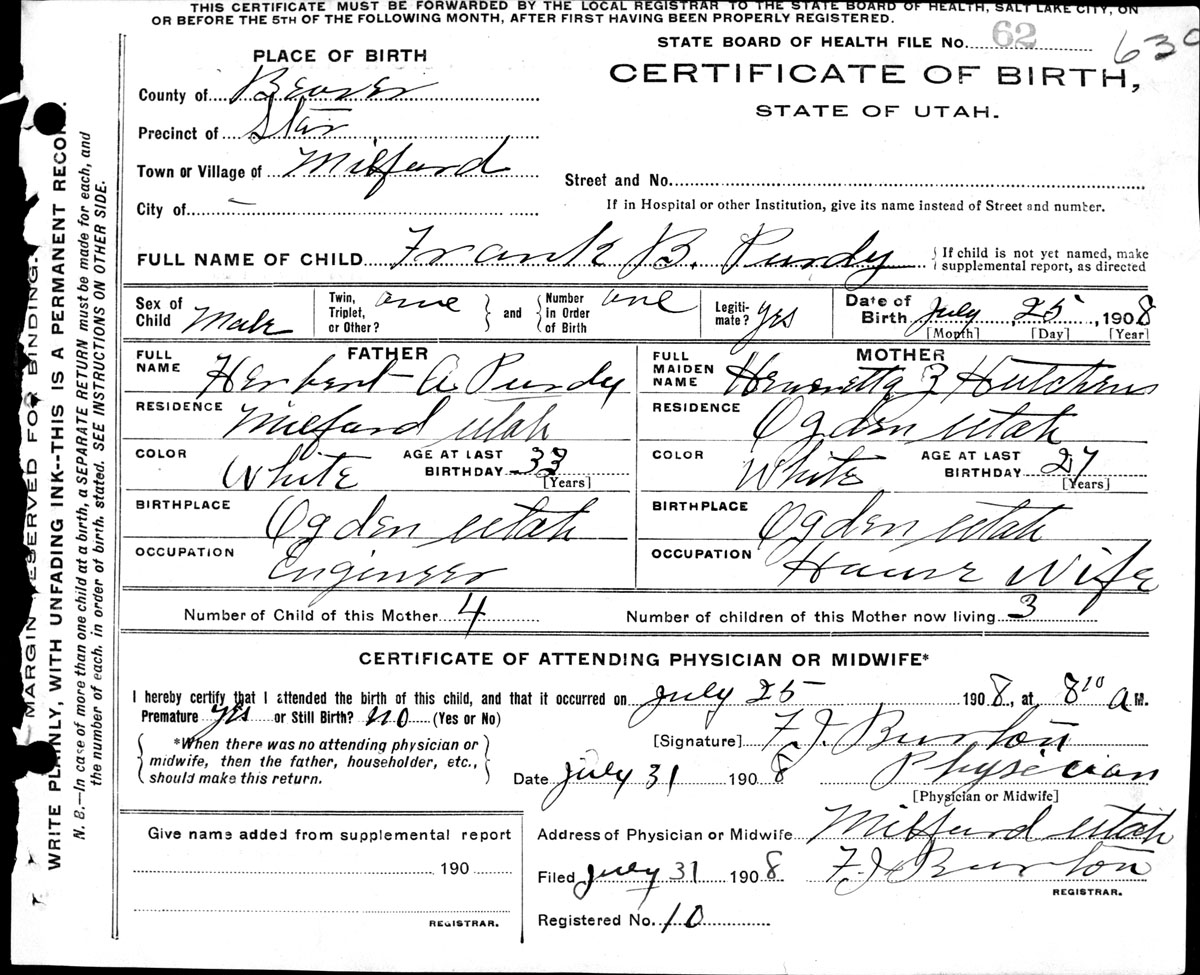 THIS CERTIFICATE MUST BE FORWARDED BY THE LOCAL REGISTRAR TO THE STATE BOARD OF HEALTH, SALT LAKE CITY, ON
OR BEFORE THE 5TH OF THE FOLLOWING MONTH, AFTER FIRST HAVING BEEN PROPERLY REGISTERED.
STATE BOARD OF HEALTH FILE No. 62
630
PLACE OF BIRTH
CERTIFICATE OF BIRTH,
STATE OF UTAH.
County of Beaver
Precinct of Star
Town or Village of Milford
Street and No.
City of –
If in Hospital or other Institution, give its name instead of Street and number.
FULL NAME OF CHILD Frank B. Purdy
If child is not yet named, make
supplemental report, as directed
Sex of Child Male
Twin, Triplet, or Other? one and Number in Order of Birth one
Legitimate? yes
Date of Birth July 25, 1908
[Month] [Day] [Year]
FATHER
FULL NAME Herbert A Purdy
RESIDENCE Milford Utah
COLOR White AGE AT LAST BIRTHDAY 33 [Years]
BIRTHPLACE Ogden Utah
OCCUPATION Engineer
MOTHER
FULL MAIDEN NAME Henrietta Z Hutchens
RESIDENCE Ogden Utah
COLOR White AGE AT LAST BIRTHDAY 27 [Years]
BIRTHPLACE Ogden Utah
OCCUPATION House Wife
Number of Child of this Mother 4 Number of children of this Mother now living 3
CERTIFICATE OF ATTENDING PHYSICIAN OR MIDWIFE*
I hereby certify that I attended the birth of this child, and that it occurred on July 25 1908, at 8 10 A M.
Premature yes or Still Birth? No (Yes or No)
*When there was no attending physician or
midwife, then the father, householder, etc.,
should make this return.
[Signature] F. J. Burton
Date July 31 1908 Physician
[Physician or Midwife]
Give name added from supplemental report
190
REGISTRAR.
Address of Physician or Midwife Milford Utah
Filed July 31 1908 F. J. Burton
REGISTRAR.
Registered No. 10
MARGIN RESERVED FOR BINDING.
WRITE PLAINLY, WITH UNFADING INK--THIS IS A PERMANENT RECORD.
N. B.—In case of more than one child at a birth, a SEPARATE RETURN must be made for each, and
the number of each, in order of birth, stated. SEE INSTRUCTIONS ON OTHER SIDE.